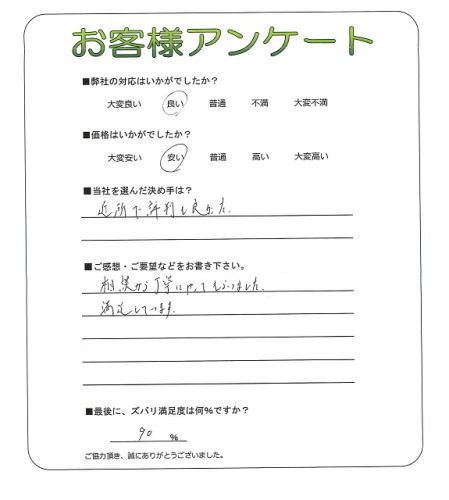 お客様アンケート
■弊社の対応はいかがでしたか?
大変良い 良い 普通 不満 大変不満
■価格はいかがでしたか?
大変安い 安い 普通 高い 大変高い
■当社を選んだ決め手は?
近所で評判も良かった.
■ご感想・ご要望などをお書き下さい。
相談から丁寧にやってもらいました.
満足しています.
■最後に、ズバリ満足度は何%ですか?
90 %
ご協力頂き、誠にありがとうございました。